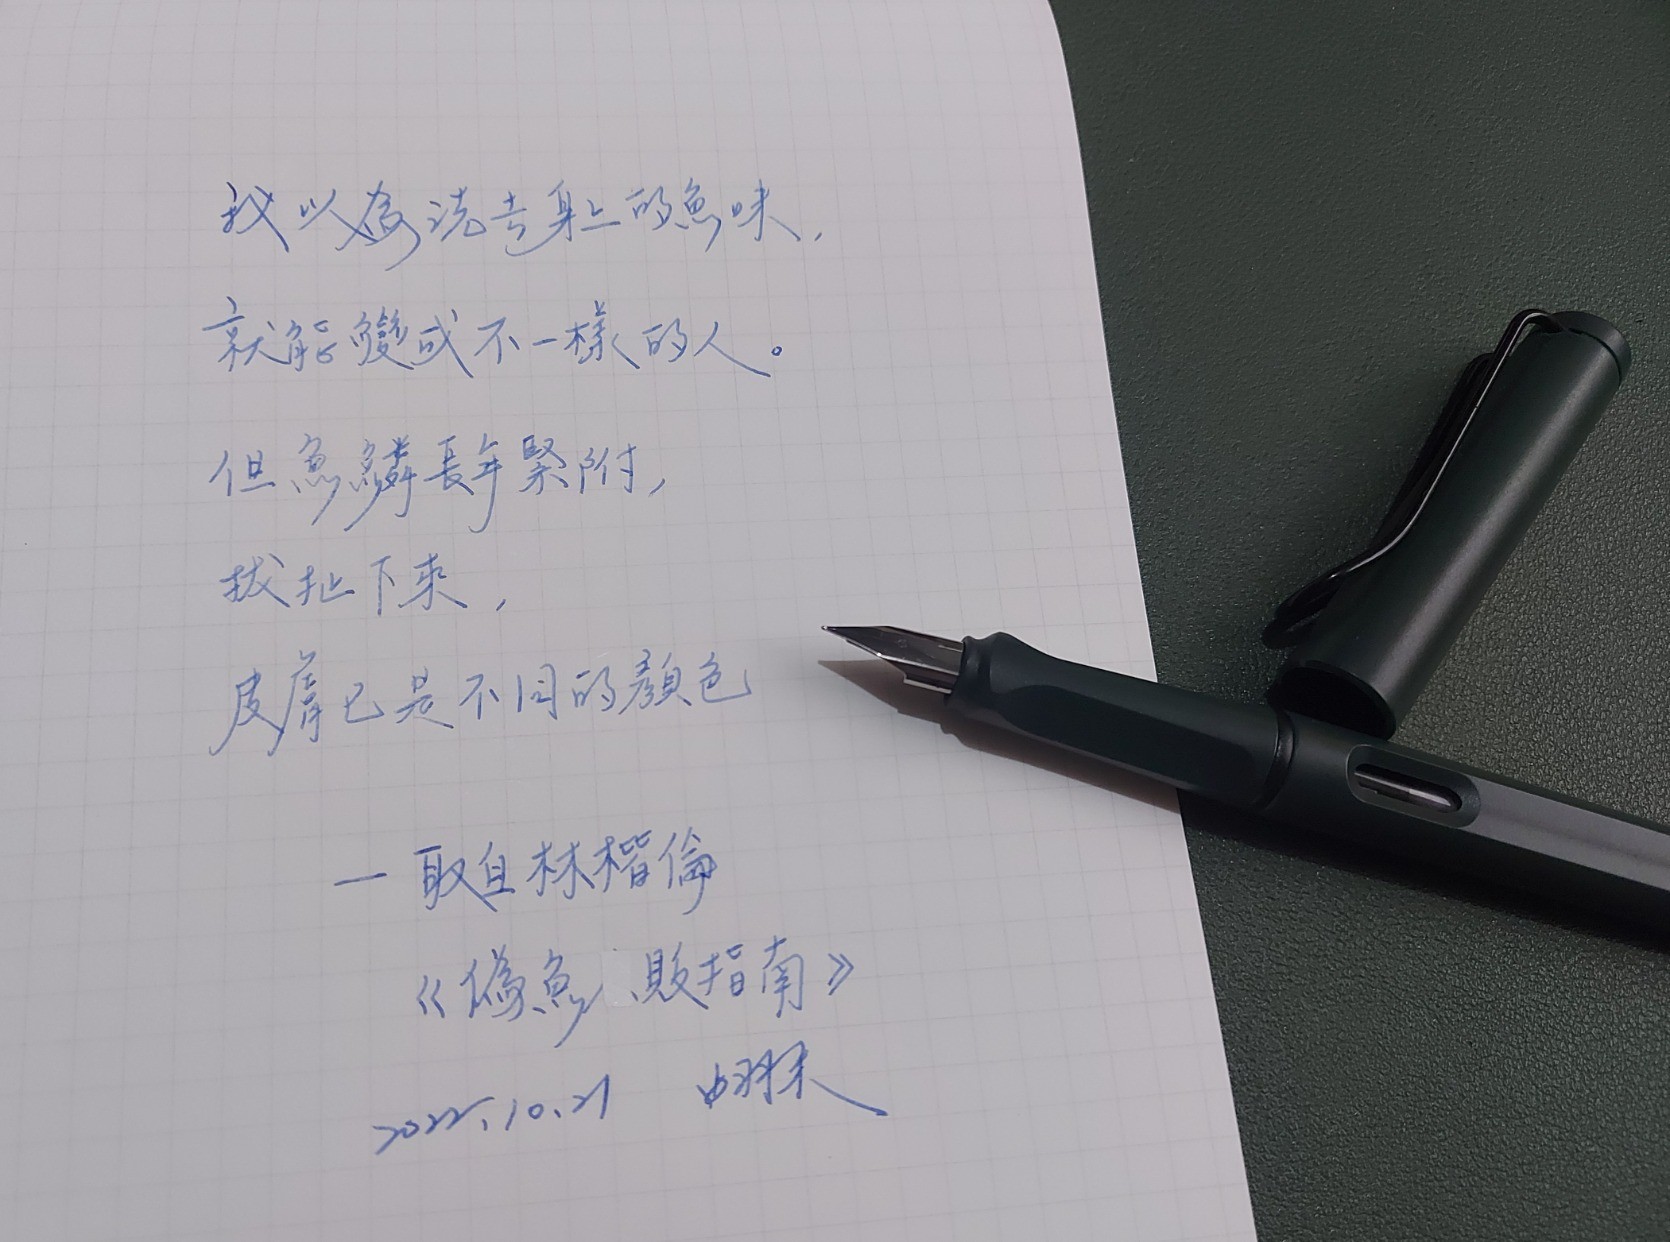 我以為洗去身上的魚味,
就能變成不一樣的人。
但魚鱗長年緊附,
拔扯下來,
皮膚已是不同的顏色
— 取自林楷倫
《偽魚販指南》
2022.10.21